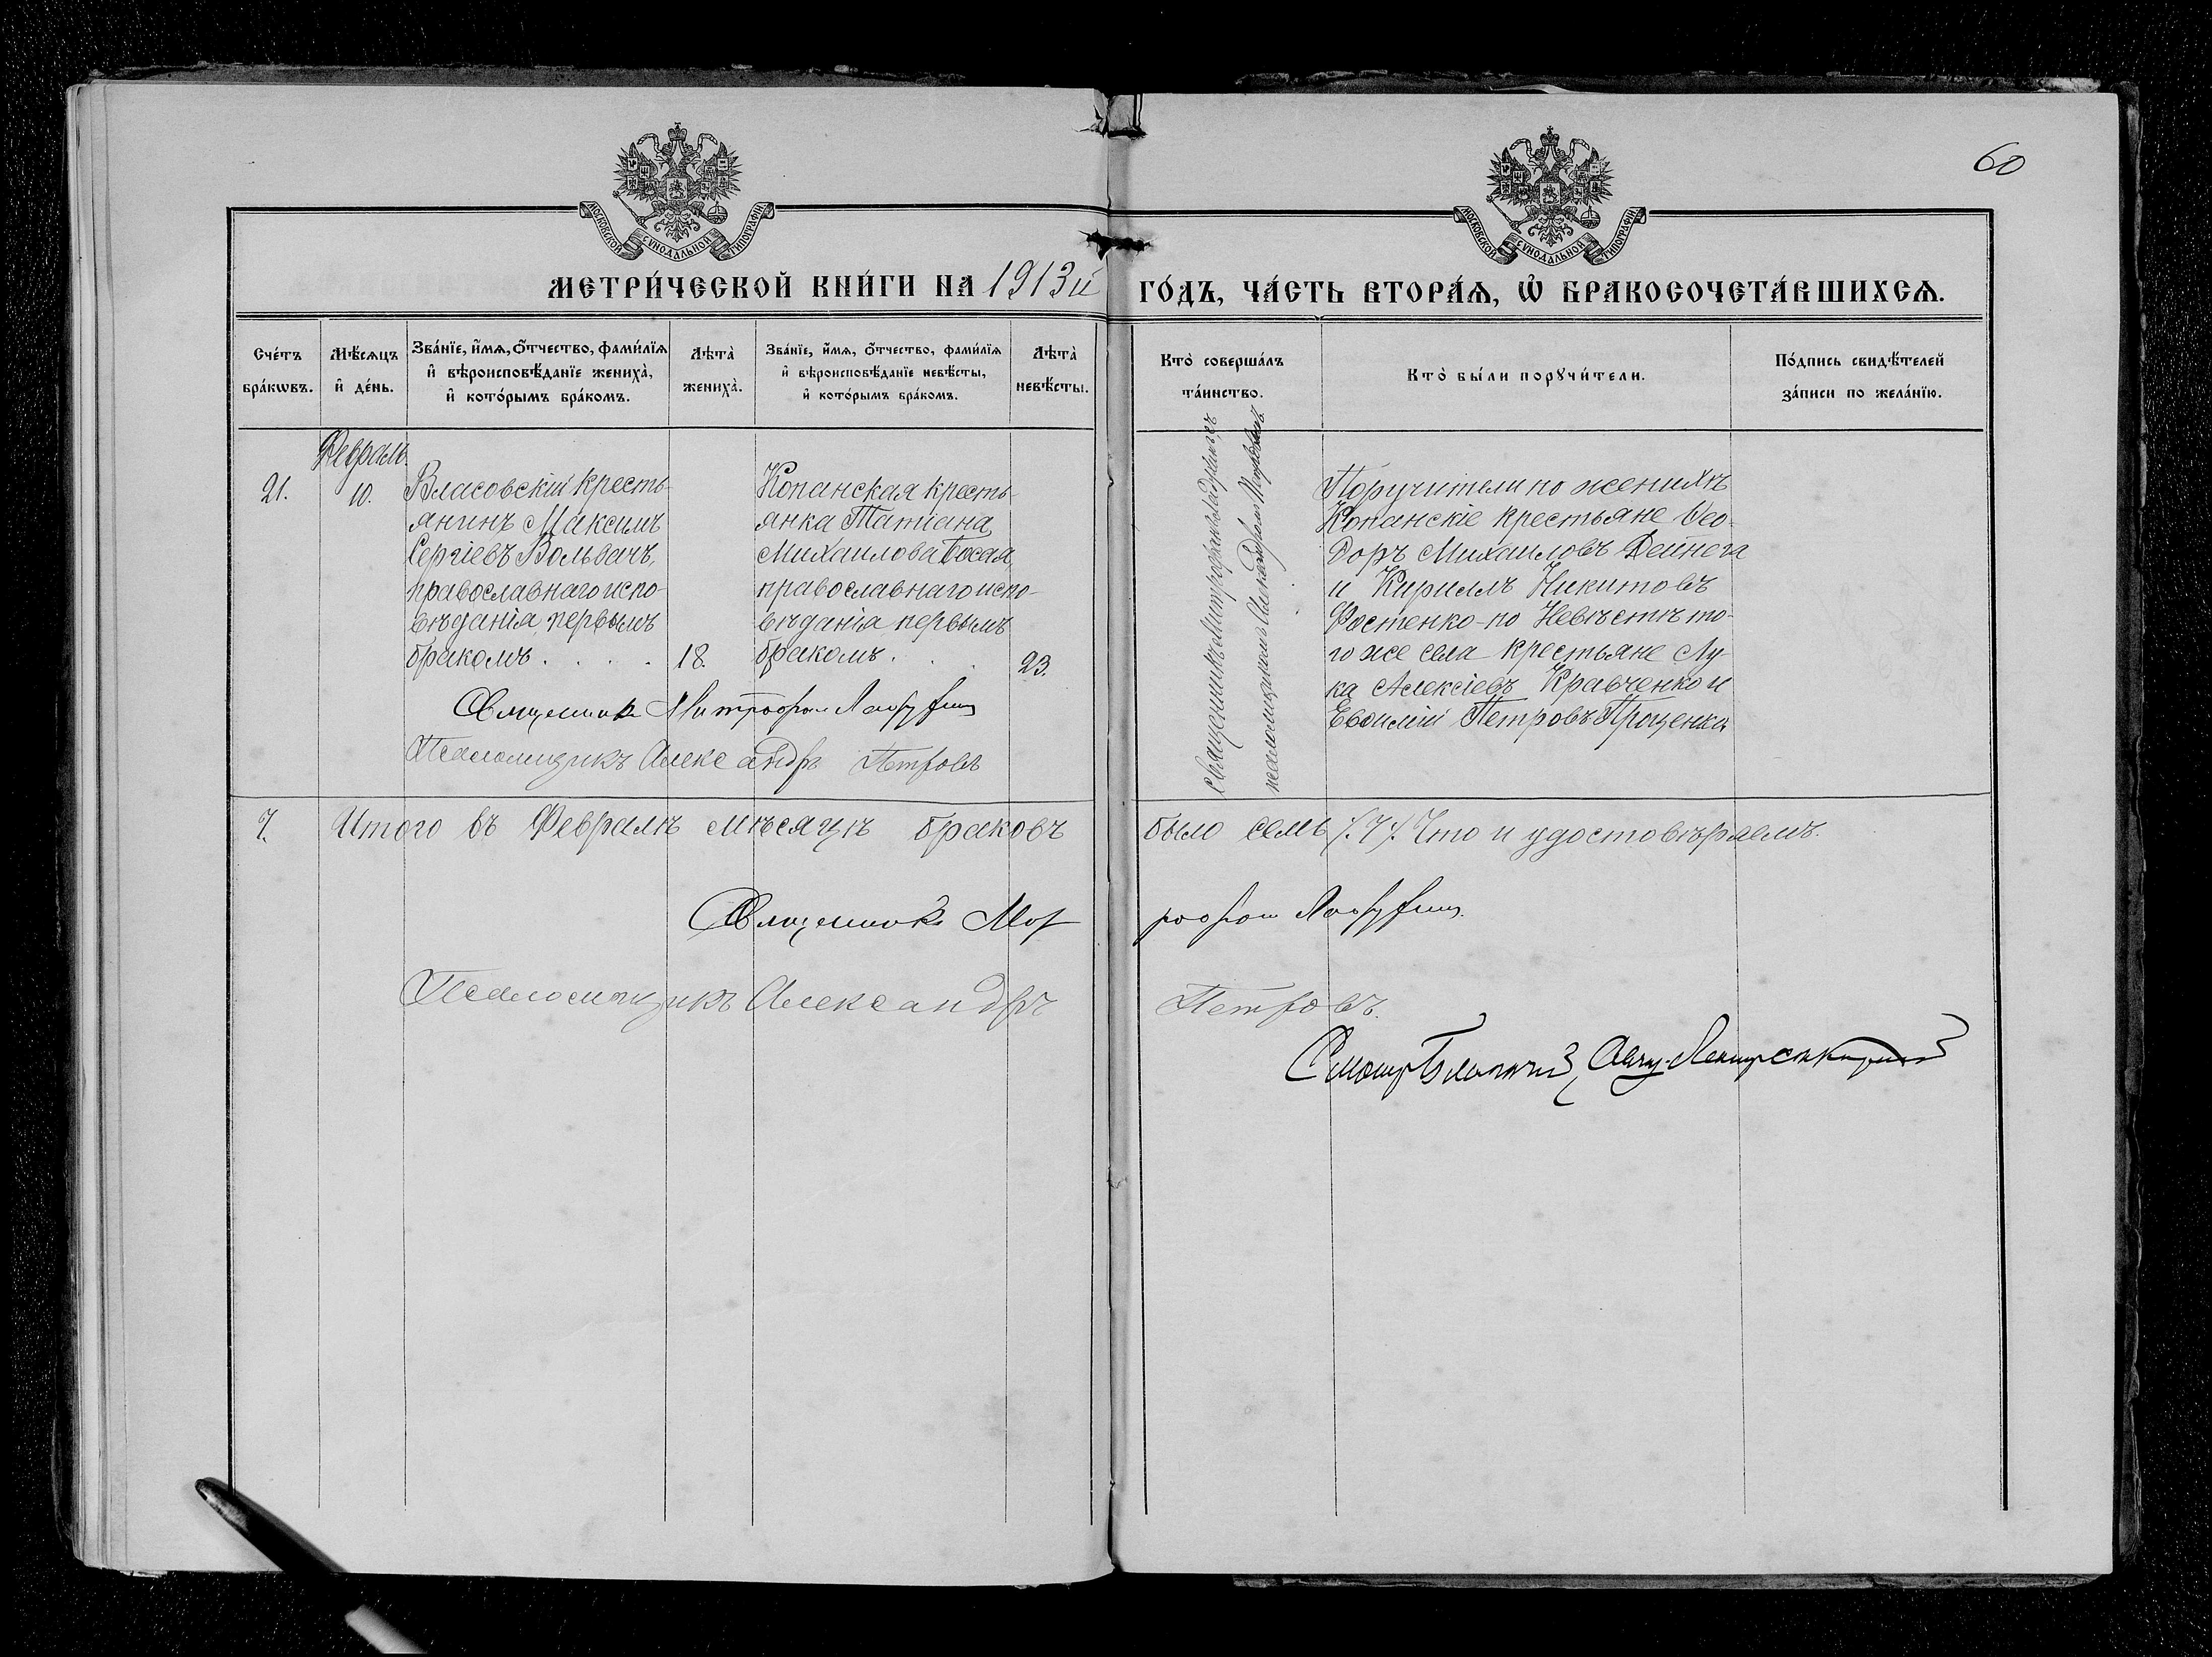 60
МОСКОВСКОЙ СѴНОДАЛЬНОЙ ТИПОГРАФІИ
МОСКОВСКОЙ СѴНОДАЛЬНОЙ ТИПОГРАФІИ
МЕТРИ́ЧЕСКОЙ КНИ́ГИ НА 1913й ГО́ДЪ, ЧА́СТЬ ВТОРА́Ѧ, Ѡ҆ БРАКОСОЧЕТА́ВШИХСѦ.
Сче́тъ
бра́кѡвъ.
Мѣ́сѧцъ
и҆ де́нь.
Зва́нїе, и҆́мѧ, о҆́тчество, фами́лїѧ
и҆ вѣроисповѣ́данїе жениха̀,
и҆ кото́рымъ бра́комъ.
Лѣта̀
жениха̀.
Зва́нїе, и҆́мѧ, о҆́тчество, фами́лїѧ
и҆ вѣроисповѣ́данїе невѣ́сты,
и҆ кото́рымъ бра́комъ.
Лѣта̀
невѣ́сты.
Кто̀ соверша́лъ
та́инство.
Кто̀ бы́ли порꙋчи́тели.
По́дпись свидѣ́телей
за́писи по жела́нїю.
21.
Февраль
10.
Власовскій кресть-
янинъ Максимъ
Сергіевъ Вольвачъ,
православнаго испо-
вѣданія, первымъ
бракомъ . . . .
18.
Копанская кресть-
янка Татіана
Михаилова Босая,
православнаго испо-
вѣданія первымъ
бракомъ . . .
23.
Священникъ Митрофанъ
псаломщикомъ Александромъ
Поручители по женихѣ
Копанскіе крестьяне Ѳео-
доръ Михаиловъ Дейнега
и Кириллъ Никитовъ
Фастенко - по Невѣстѣ то-
го же села крестьяне Лу-
ка Алексіевъ Кравченко и
Евѳимій Петровъ Проценко
Священникъ Митрофанъ
Псаломщикъ Александръ Петровъ
7. Итого въ Февралѣ мѣсяцѣ браковъ было семь /:7:/ Что и удостовѣряемъ.
Священникъ
Псаломщикъ Александръ Петровъ.